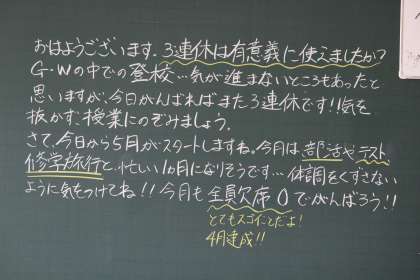 おはようございます. 3連休は有意義に使えましたか?
G・Wの中での登校…気が進まないところもあったと
思いますが、今日がんばればまた3連休です!!気を
抜かず、授業にのぞみましょう。
さて、今日から5月がスタートしますね。今月は、部活やテスト
修学旅行と、忙しい1カ月になりそうです…体調をくずさない
ように気をつけてね!!今月も全員欠席0でがんばろう!!
とてもスゴイことだよ!
4月達成!!